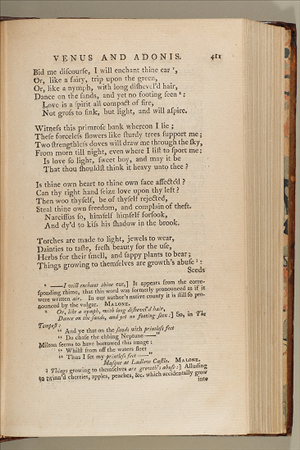 VENUS AND ADONIS. 421
Bid me discourse, I will enchant thine ear ¹,
Or, like a fairy, trip upon the green,
Or, like a nymph, with long dishevel'd hair,
Dance on the sands, and yet no footing seen ²:
Love is a spirit all compact of fire,
Not gross to sink, but light, and will aspire.
Witness this primrose bank whereon I lie;
These forceless flowers like sturdy trees support me;
Two strengthless doves will draw me through the sky,
From morn till night, even where I list to sport me:
Is love so light, sweet boy, and may it be
That thou shouldst think it heavy unto thee?
Is thine own heart to thine own face affected?
Can thy right hand seize love upon thy left?
Then woo thyself, be of thyself rejected,
Steal thine own freedom, and complain of theft.
Narcissus so, himself himself forsook,
And dy'd to kiss his shadow in the brook.
Torches are made to light, jewels to wear,
Dainties to taste, fresh beauty for the use,
Herbs for their smell, and sappy plants to bear;
Things growing to themselves are growth's abuse ³:
Seeds
¹ —I will enchant thine ear,] It appears from the corre-
sponding rhime, that this word was formerly pronounced as if it
were written air. In our author's native county it is still so pro-
nounced by the vulgar. MALONE.
² Or, like a nymph, with long dishevel'd hair,
Dance on the sands, and yet no footing seen:] So, in The
Tempest:
" And ye that on the sands with printless feet
" Do chase the ebbing Neptune—"
Milton seems to have borrowed this image:
" Whilst from off the waters fleet
" Thus I set my printless feet—"
Masque at Ludlow Castle. MALONE.
³ Things growing to themselves are growth's abuse:] Alluding
to twinn'd cherries, apples, peaches, &c. which accidentally grow
into